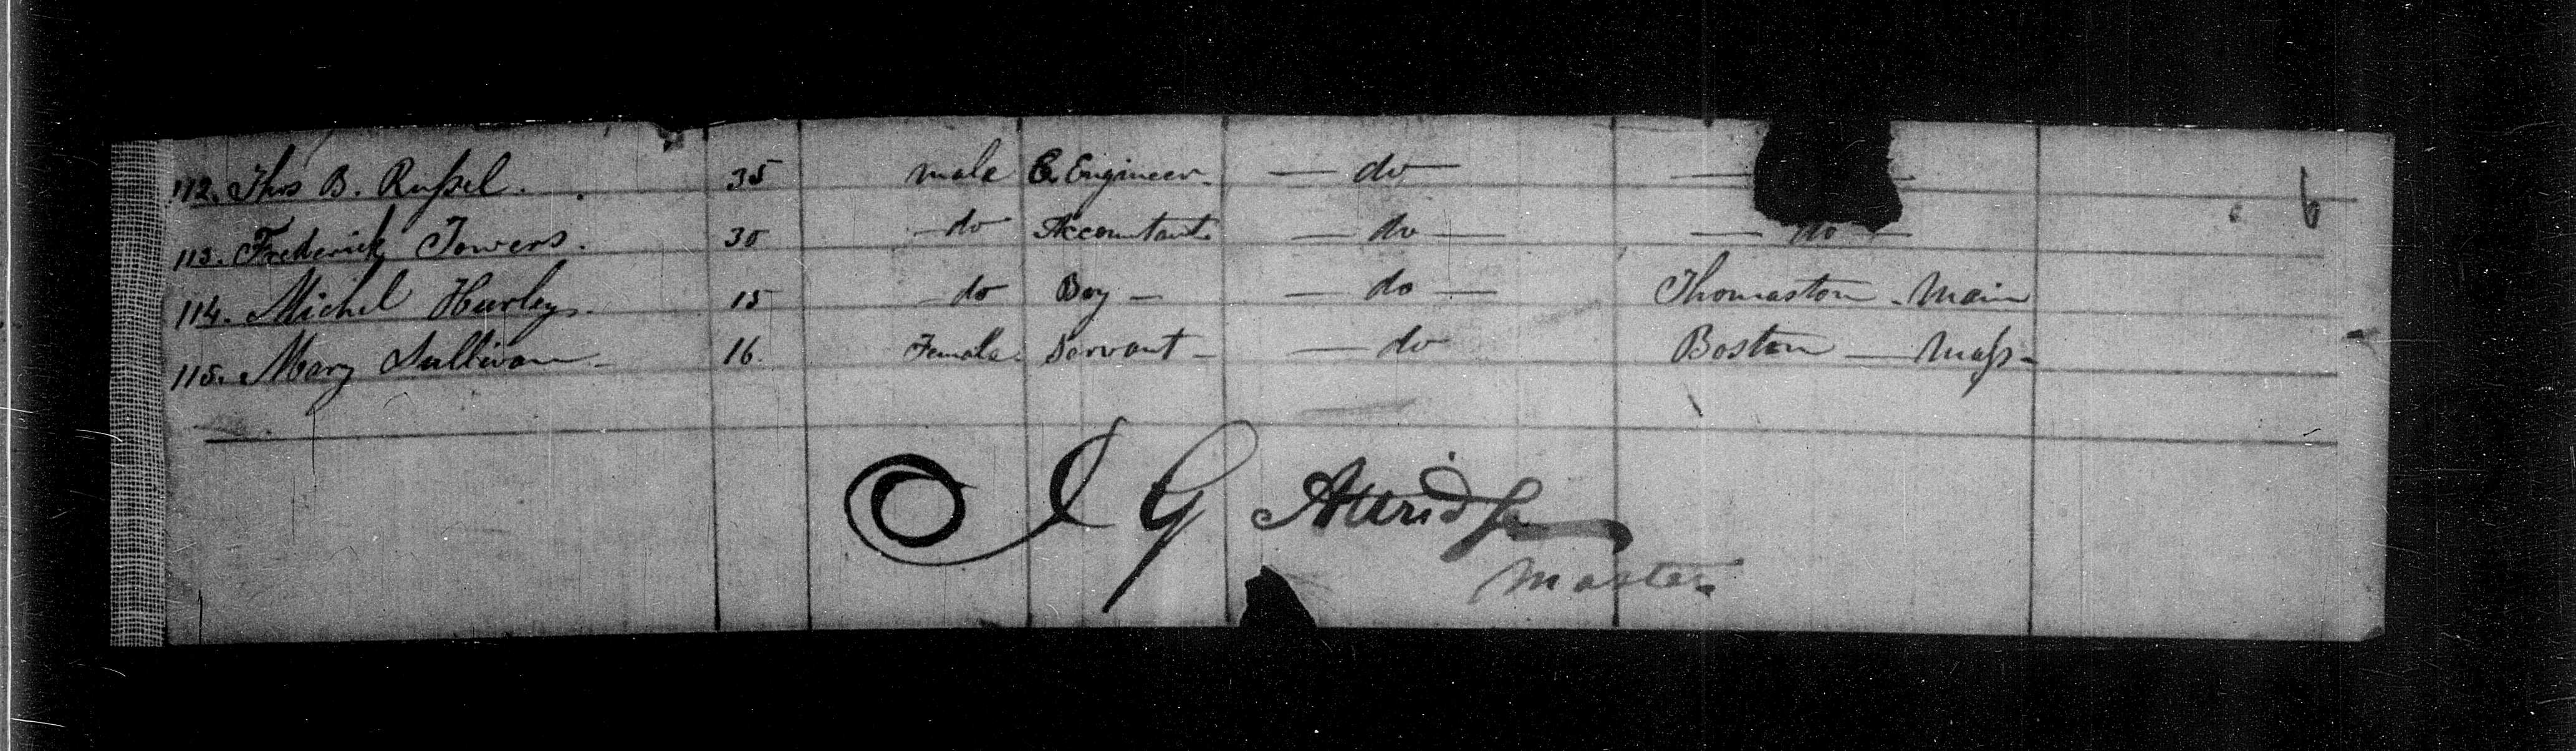 112. Thos B. Russel. 35 male C. Engineer. — do — —
113. Frederick Towers. 30 do Accountant — do — — do —
114. Michel Hurley. 15 do Boy — — do — Thomaston - Main
115. Mary Sullivan — 16. Female. Servant — — do Boston — Mass —
J G Attridge
Master